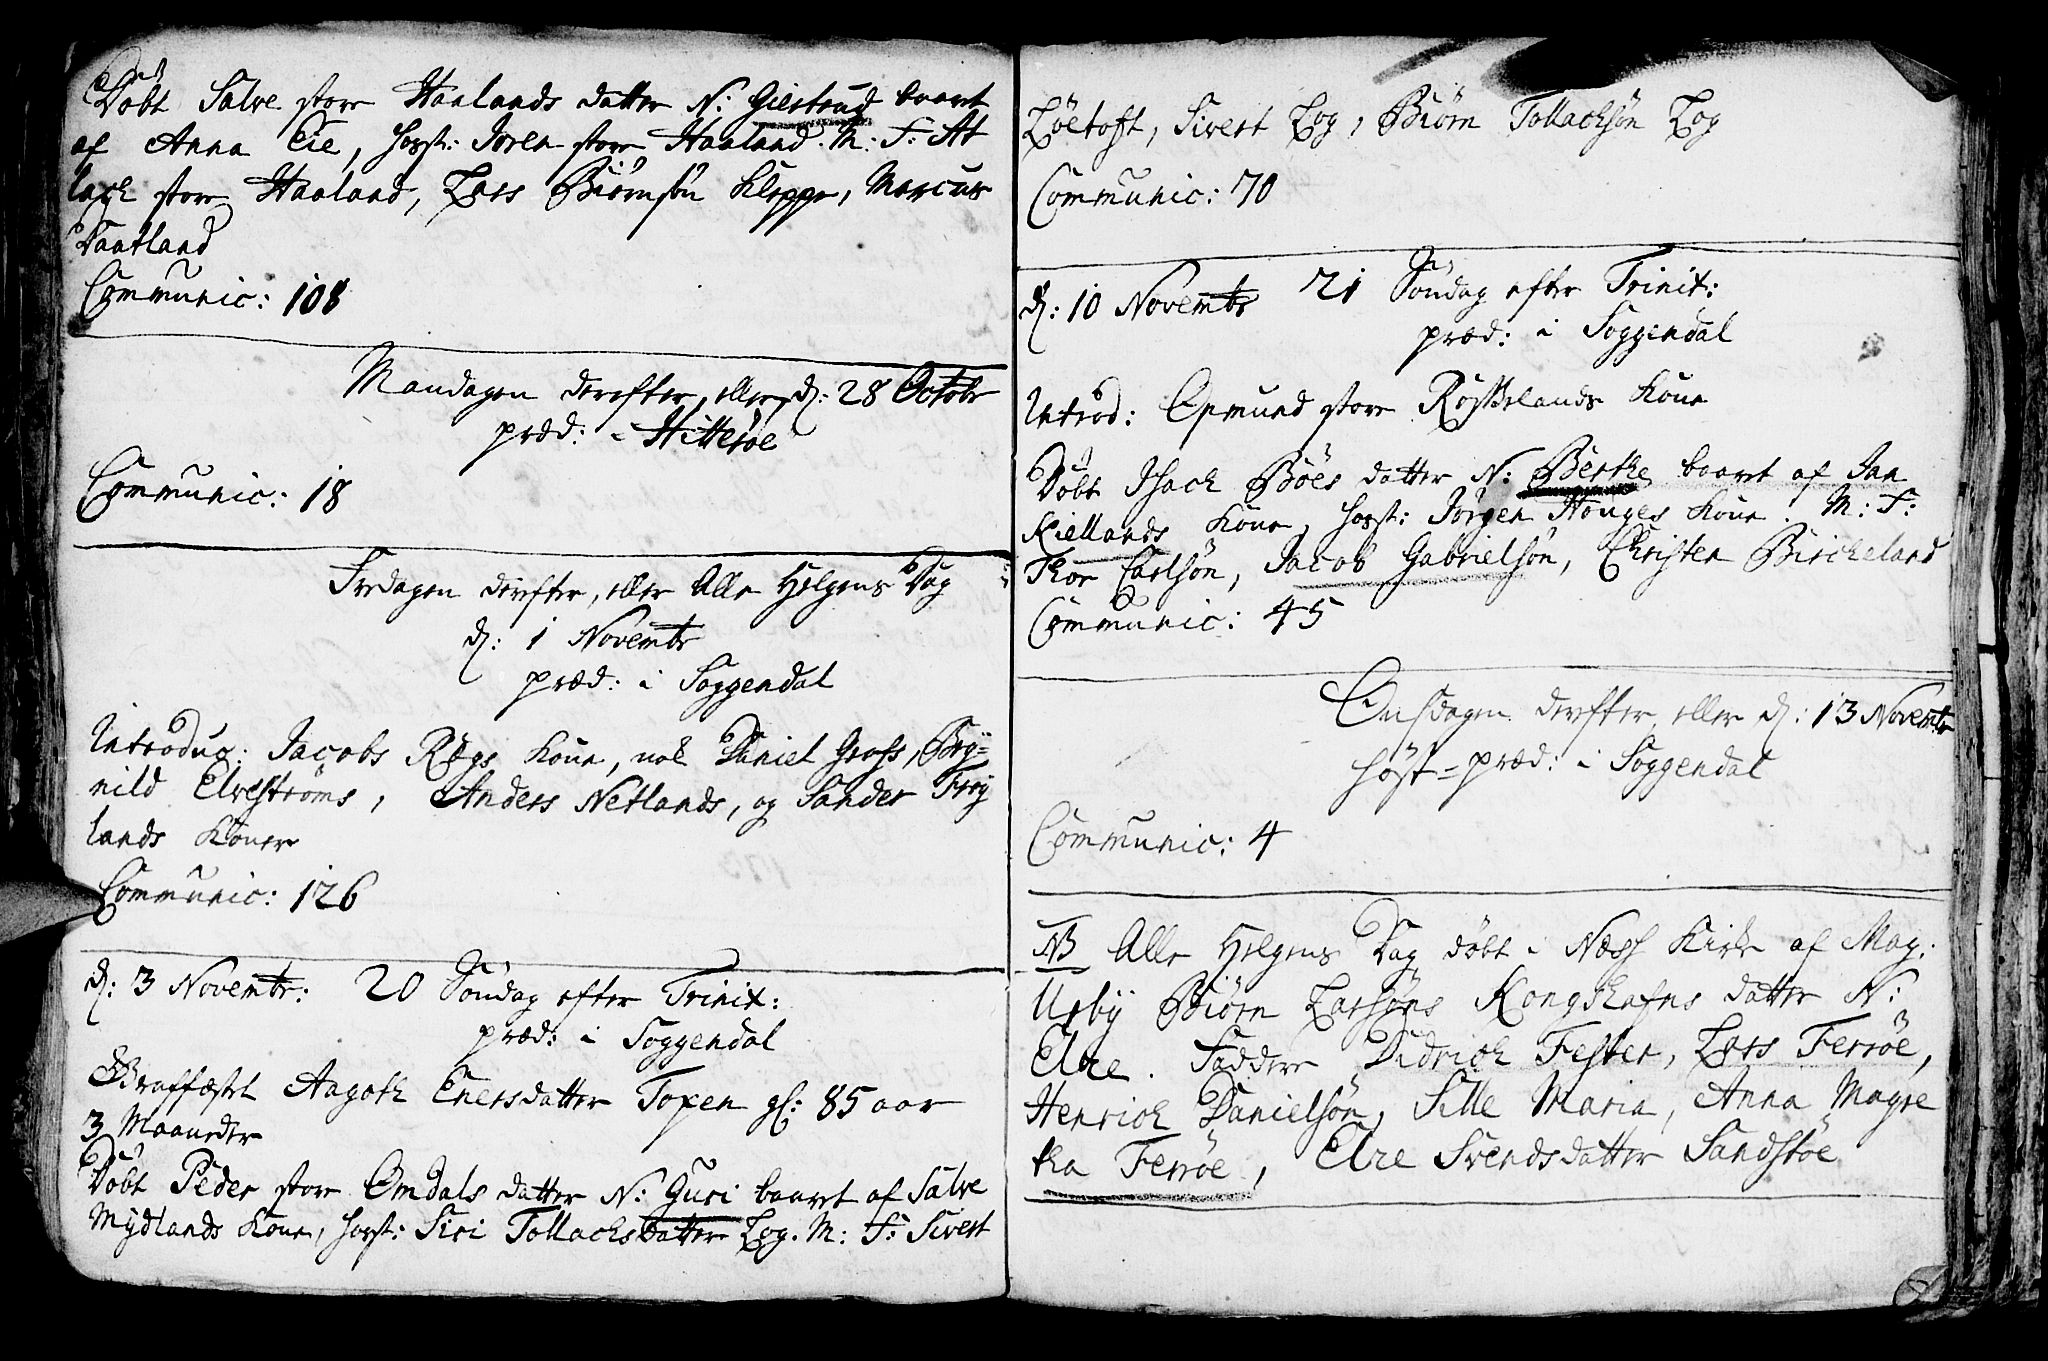 Døbt Salve store Haalands datter N: Giertrud baaret
af Anna Eie, hosst: Joren store Haaland. M: F: At
lach store Haaland, Lars Biørnsøn Kleppe, Marcus
Daatland
Communic: 108
Mandagen derefter, eller d: 28 Octobr
præd: i Hitterøe
Communic: 18
Fredagen derefter, eller Alle Helgens Dag
d: 1 Novembr
præd: i Soggendal
Introduc: Jacobs Rægs Kone, nok Daniel Gross, Bry=
nild Elvestrøms, Anders Netlands, og Sander Frøy
lands Koner
Communic: 126
d: 3 Novembr: 20 Søndag efter Trinit:
præd: i Soggendal
Graffæstet Aagoth Enersdatter Topen gl: 85 aar
3 Maaneder
Døbt Peder store Omdals datter N: Guri baaret af Salve
Mydlands Kone, hosst: Siri Tollachsdatter Log. M: F: Sivert
Løetoft, Sivert Log, Biørn Tollachsøn Log
Communic: 70
d: 10 Novembr 21 Søndag efter Trinit:
præd: i Soggendal
Introd: Omund store Røsslands Kone
Døbt Isach Bøes datter N: Berthe baaret af Jan
Kiellands Kone, hosst: Jørgen Houges Kone. M: F:
Thor Carlsøn, Jacob Gabrielsøn, Christen Bircheland
Communic: 45
Onsdagen derefter, eller d: 13 Novembr
høst=præd: i Soggendal
Communic: 4
NB Alle Helgens Dag døbt i Næss Kirke af Mag:
Urby Biørn Larsøns Kongshafns datter N:
Elre. Faddere Didrich Fester, Lars Ferrøe,
Henrich Danielsøn, Sille Maria, Anna Magre
tha Ferrøe, Elre Svendsdatter Sandstøe